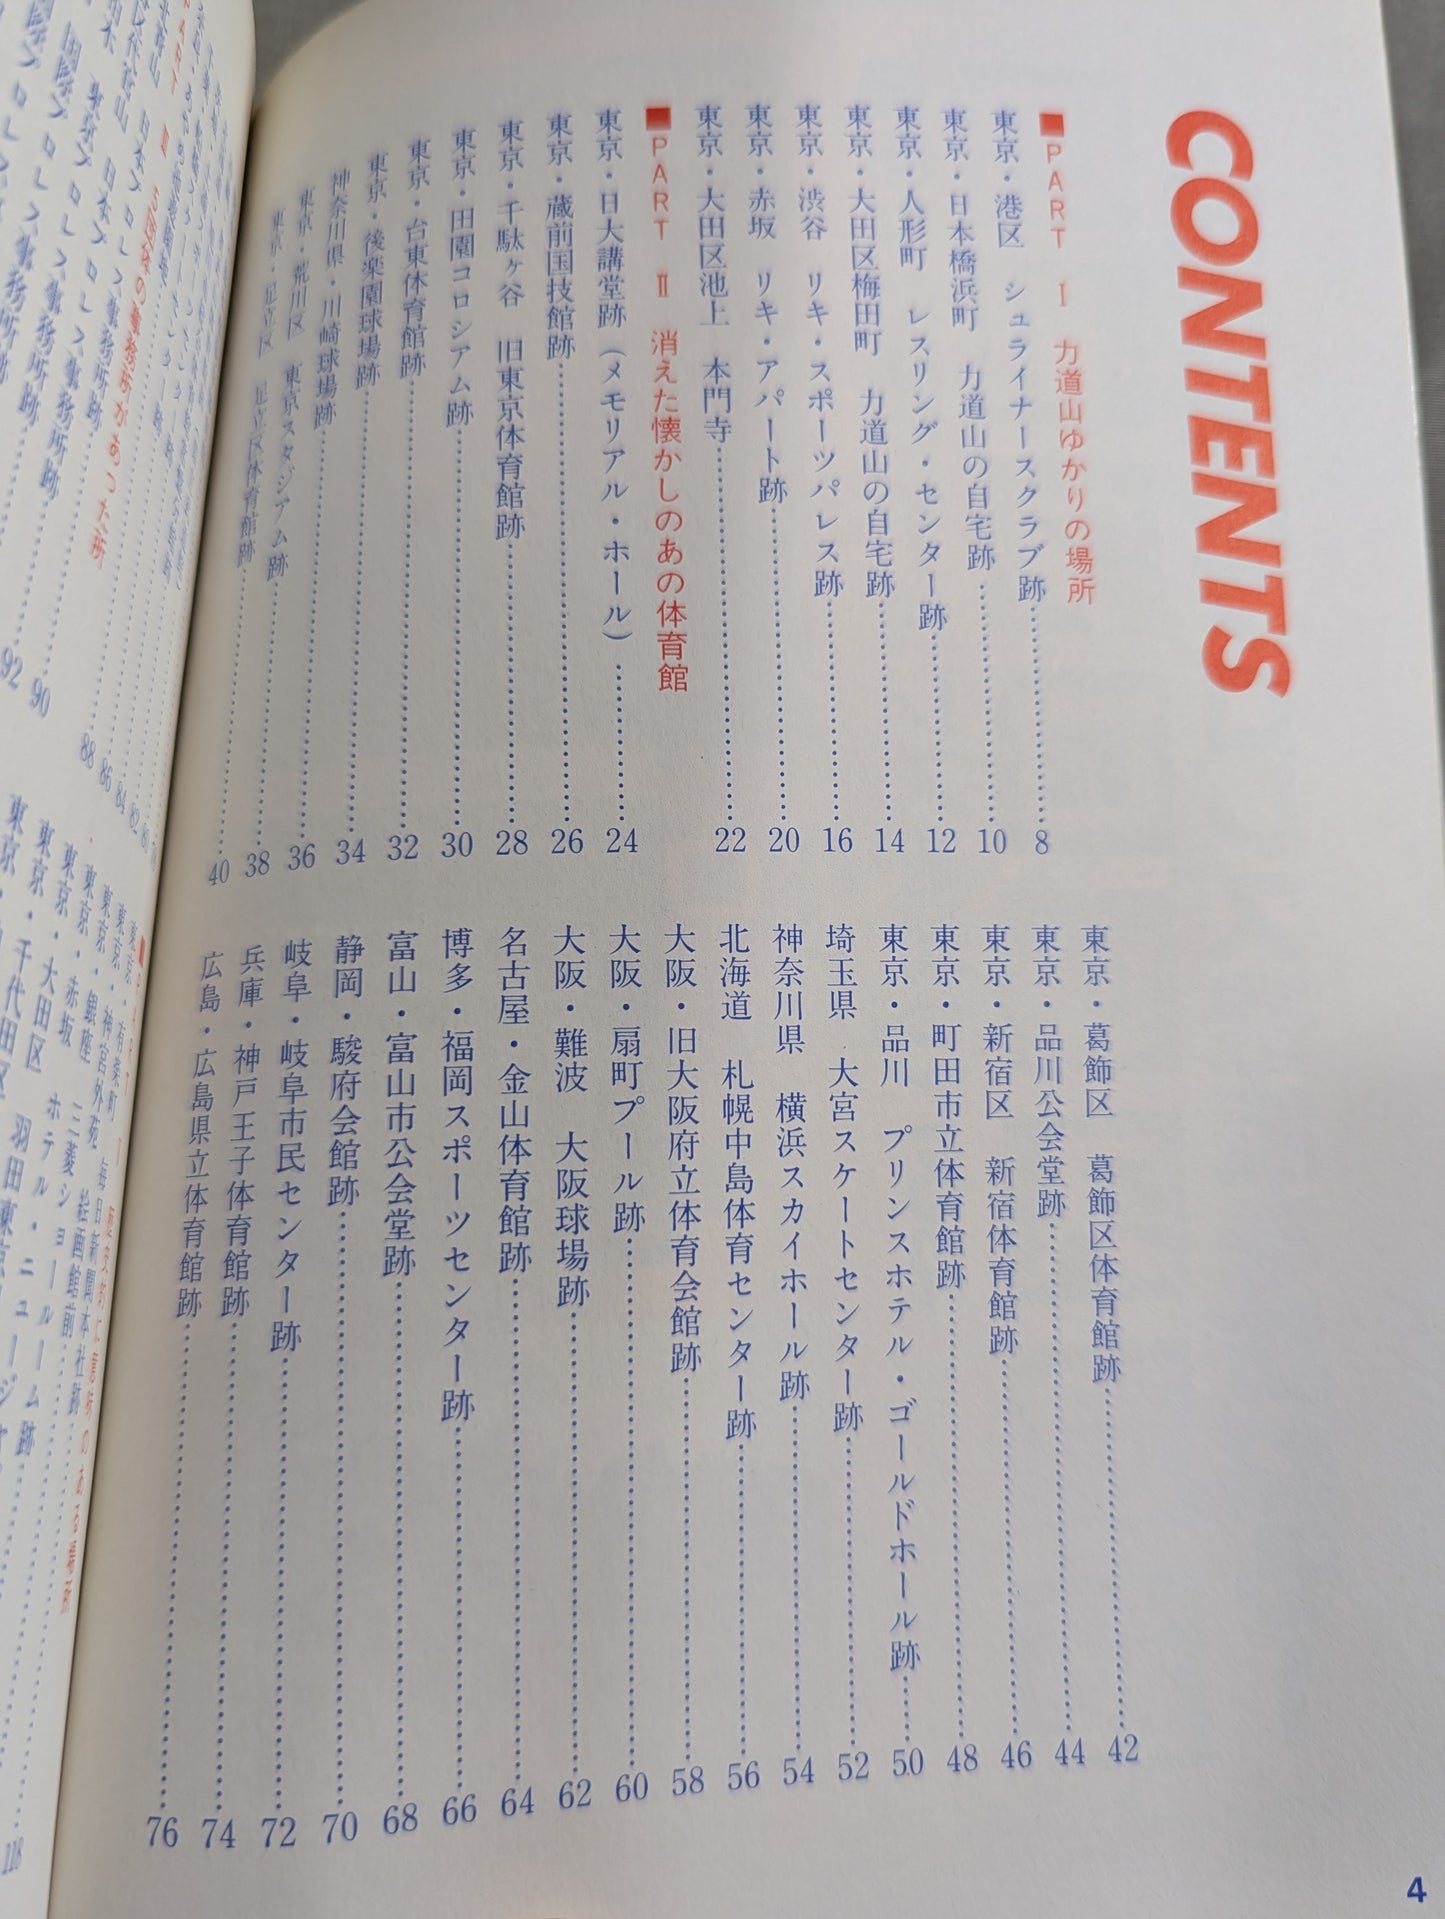 CONTENTS
■PART Ⅰ 力道山ゆかりの場所
東京・港区 シュライナースクラブ跡 8
東京・日本橋浜町 力道山の自宅跡 10
東京・人形町 レスリング・センター跡 12
東京・大田区梅田町 力道山の自宅跡 14
東京・渋谷 リキ・スポーツパレス跡 16
東京・赤坂 リキ・アパート跡 20
東京・大田区池上 本門寺 22
■PART Ⅱ 消えた懐かしのあの体育館
東京・日大講堂跡(メモリアル・ホール) 24
東京・蔵前国技館跡 26
東京・千駄ヶ谷 旧東京体育館跡 28
東京・田園コロシアム跡 30
東京・台東体育館跡 32
東京・後楽園球場跡 34
神奈川県・川崎球場跡 36
東京・荒川区 東京スタジアム跡 38
東京・足立区 足立区体育館跡 40
東京・葛飾区 葛飾区体育館跡 42
東京・品川公会堂跡 44
東京・新宿区 新宿体育館跡 46
東京・町田市立体育館跡 48
東京・品川 プリンスホテル・ゴールドホール跡 50
埼玉県 大宮スケートセンター跡 52
神奈川県 横浜スカイホール跡 54
北海道 札幌中島体育センター跡 56
大阪・旧大阪府立体育会館跡 58
大阪・扇町プール跡 60
大阪・難波 大阪球場跡 62
名古屋・金山体育館跡 64
博多・福岡スポーツセンター跡 66
富山・富山市公会堂跡 68
静岡・駿府会館跡 70
岐阜・岐阜市民センター跡 72
兵庫・神戸王子体育館跡 74
広島・広島県立体育館跡 76
4
82
84
86
88
90
92
東京・有楽町 毎日新聞本社跡
東京・神宮外苑 絵画館前
東京・銀座 三菱ショールーム跡
東京・赤坂 ホテル・ニュー
東京・大田区 羽田東京
東京・千代田区
118